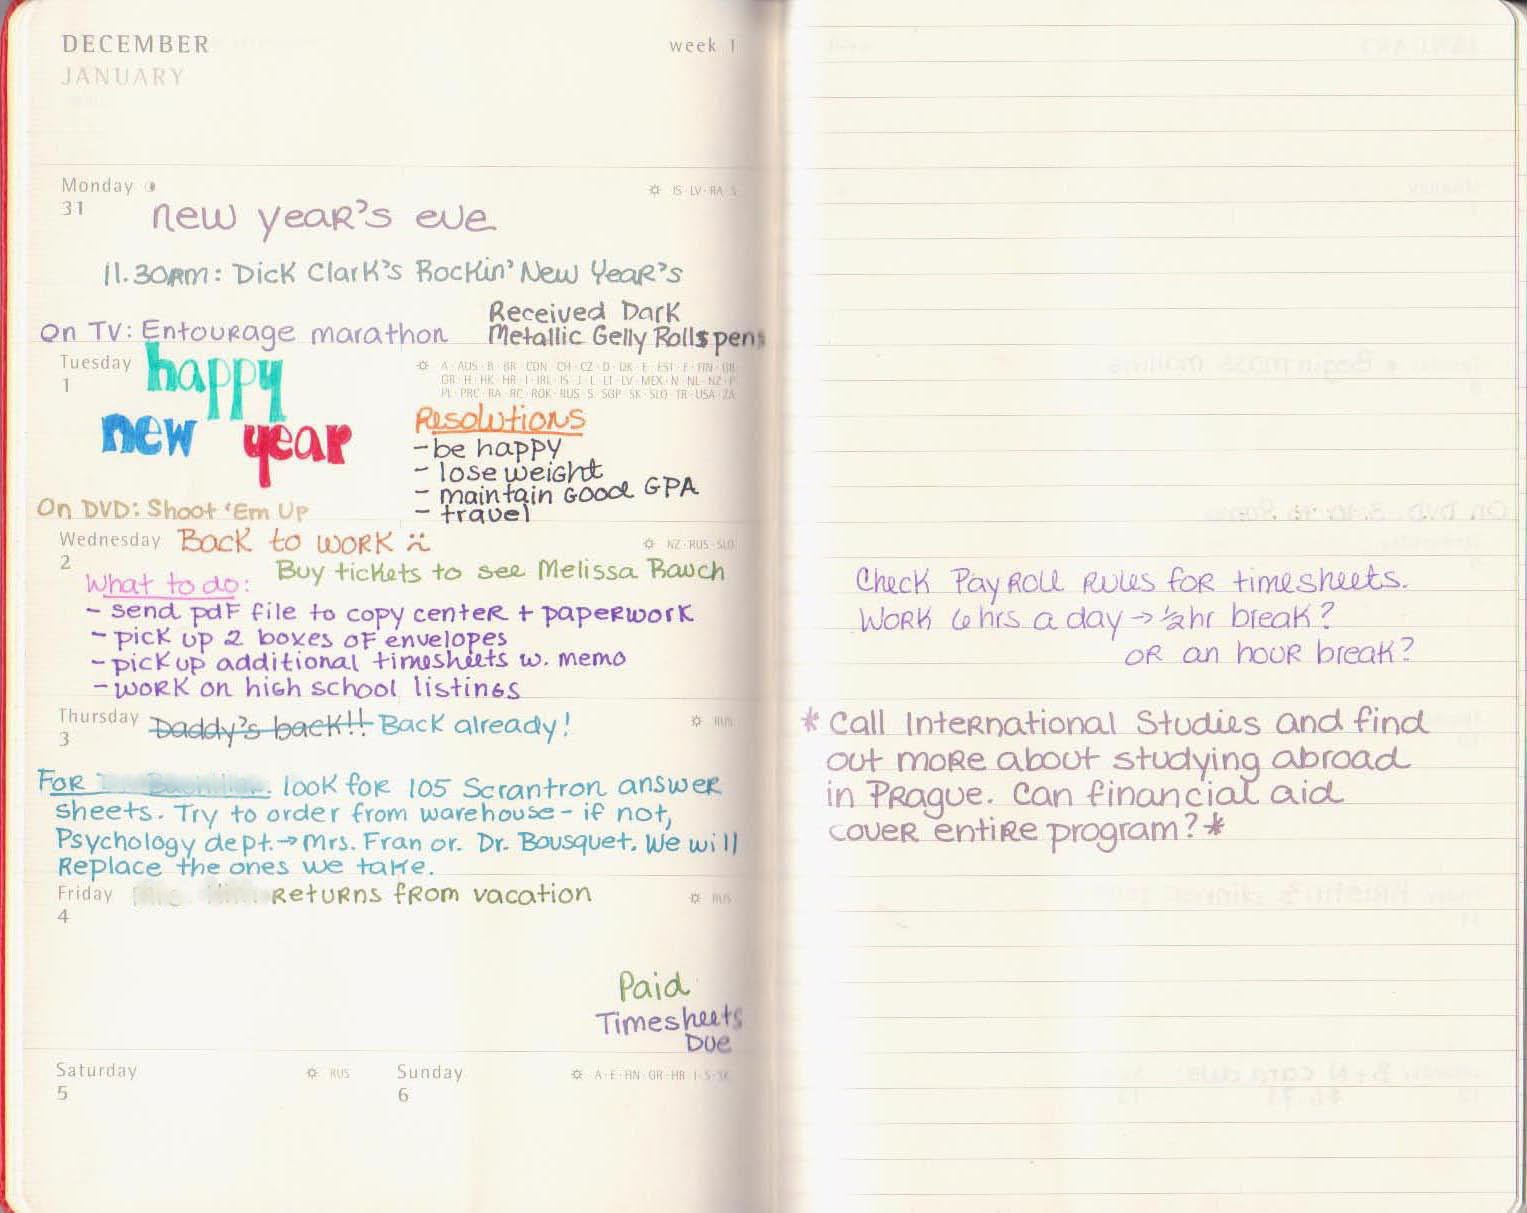 DECEMBER
JANUARY
week 1
Monday
31
new year's eve
IS · LV · RA · S
11.30pm: Dick Clark's Rockin' New Year's
On TV: Entourage marathon
Received Dark
Metallic Gelly Rolls pens
Tuesday
1
happy
new year
A · AUS · B · BR · CDN · CH · CZ · D · DK · E · EST · F · FIN · GB
GR · H · HK · HR · I · IRL · IS · J · L · LT · LV · MEX · N · NL · NZ · P
PL · PRC · RA · RC · ROK · RUS · S · SGP · SK · SLO · TR · USA · ZA
Resolutions
- be happy
- lose weight
- maintain Good GPA
- travel
On DVD: Shoot 'Em Up
Wednesday
2
Back to work
NZ · RUS · SLO
Buy tickets to see Melissa Rauch
What to do:
- send pdf file to copy center + paperwork
- pick up 2 boxes of envelopes
- pick up additional timesheets w. memo
- work on high school listings
Thursday
3
Daddy's back!! Back already!
RUS
For look for 105 Scrantron answer
sheets. Try to order from warehouse - if not,
Psychology dept. → Mrs. Fran or. Dr. Bousquet. We will
Replace the ones we take.
Friday
4
Returns from vacation
RUS
Paid
Timesheets
Due
Saturday
5
RUS
Sunday
6
A · E · FIN · GR · HR · I · S · SK
Check Payroll Rules for timesheets.
Work 6 hrs a day → ½ hr break?
or an hour break?
* Call International Studies and find
out more about studying abroad
in Prague. Can financial aid
cover entire program? *